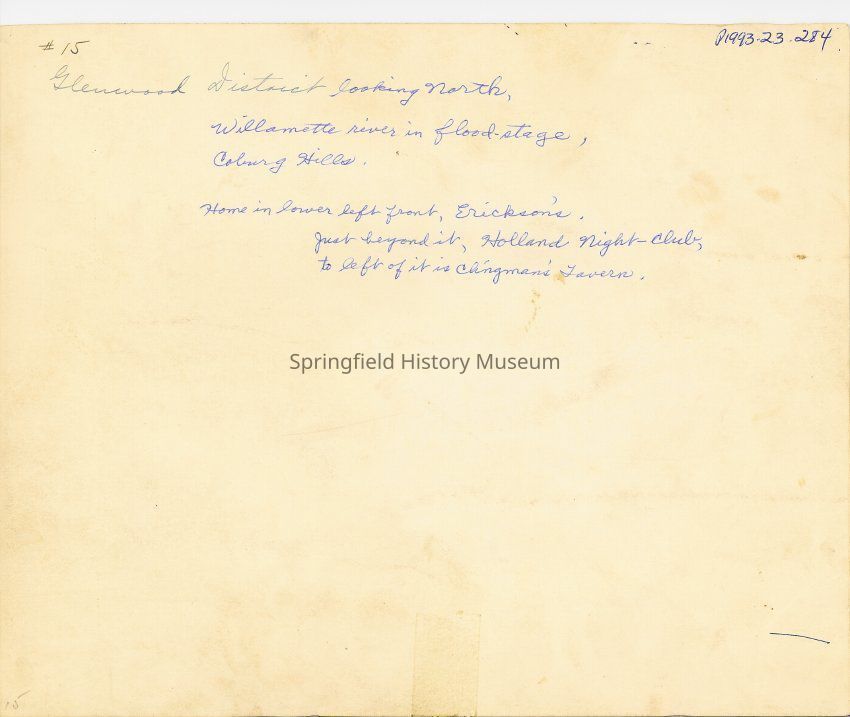 # 15
P1993.23.284
Glenwood District looking North,
Willamette river in flood-stage,
Coburg Hills.
Home in lower left front, Erickson's.
Just beyond it, Holland Night-Club,
to left of it is Clingman's Tavern.
Springfield History Museum
15